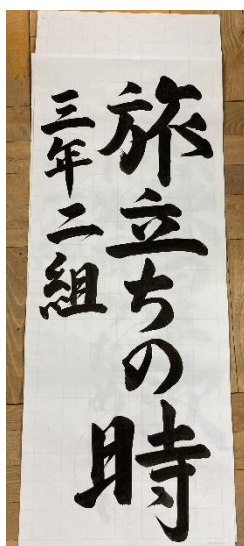 旅立ちの時
三年二組